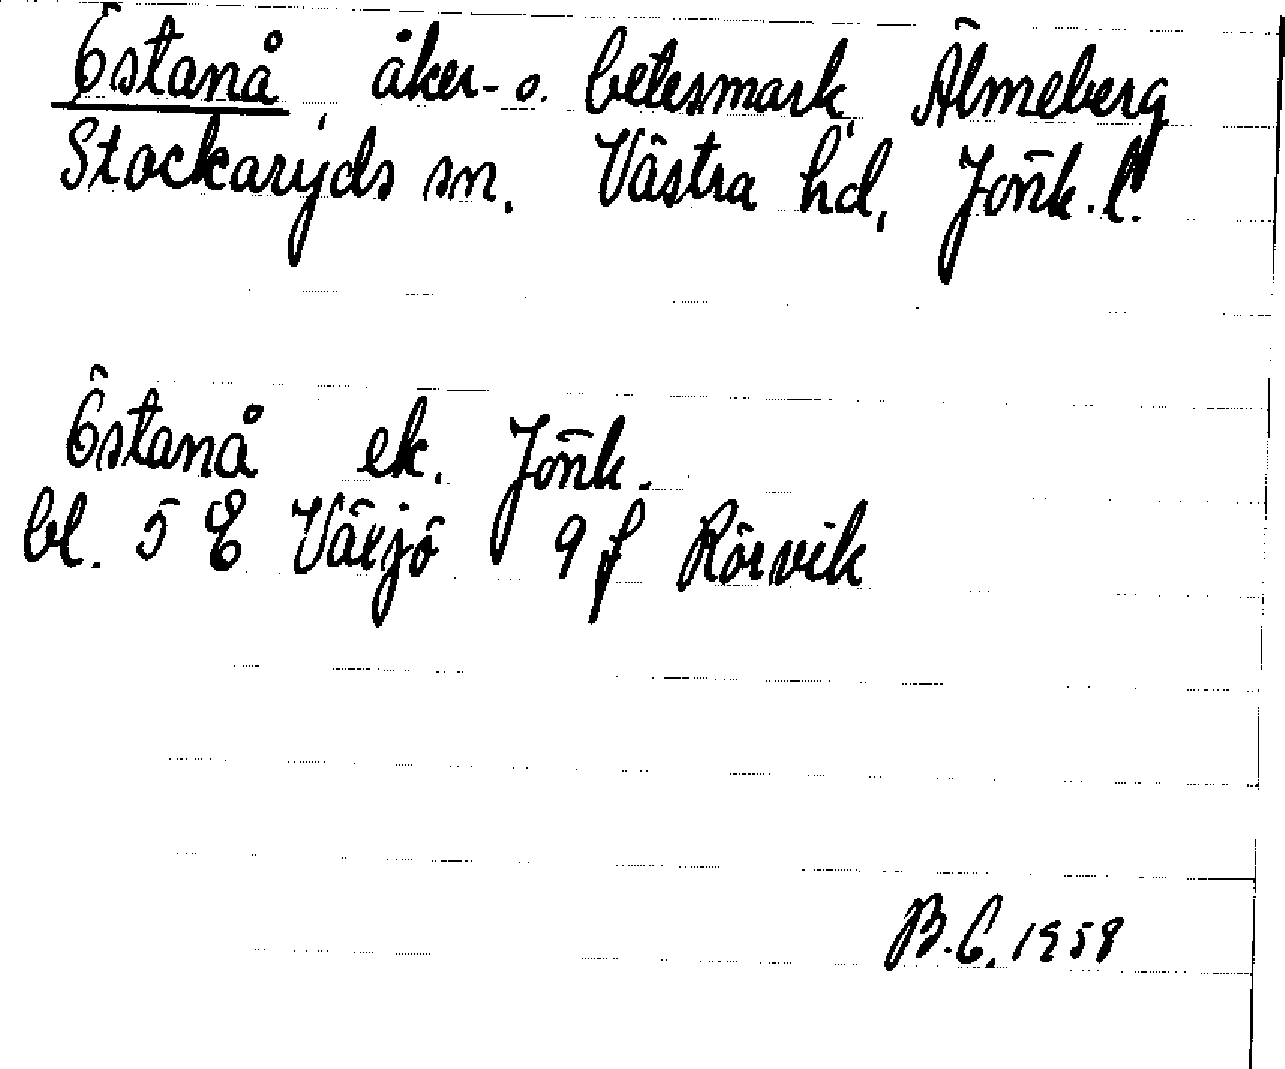 Östanå, åker- o. betesmark, Älmeberg
Stockaryds sn. Västra hd, Jönk. l.
Östanå ek. Jönk.
bl. 5 E Växjö 9 f Rörvik
B.C. 1958